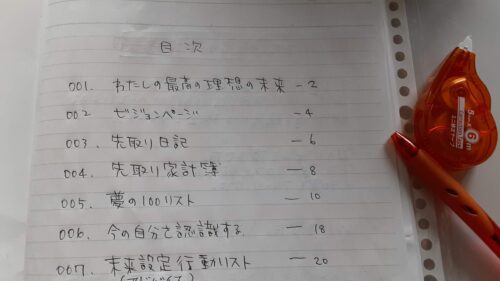 目次
001. わたしの最高の理想の未来 — 2
002 ビジョンページ — 4
003. 先取り日記 — 6
004. 先取り家計簿 — 8
005. 夢の100リスト — 10
006. 今の自分を認識する — 18
007. 未来設定行動リスト — 20